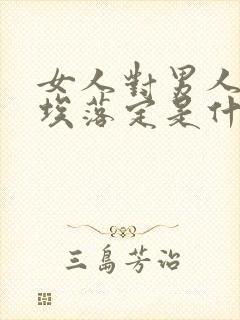 女人對男人
埃落定是什
三島芳治